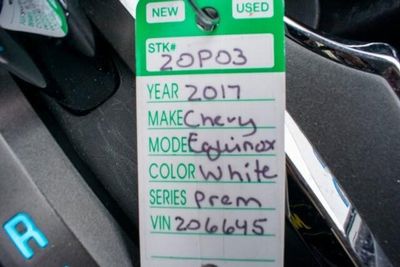 NEW USED
STK# 20P03
YEAR 2017
MAKE Chevy
MODE Equinox
COLOR White
SERIES Prem
VIN 206645
R